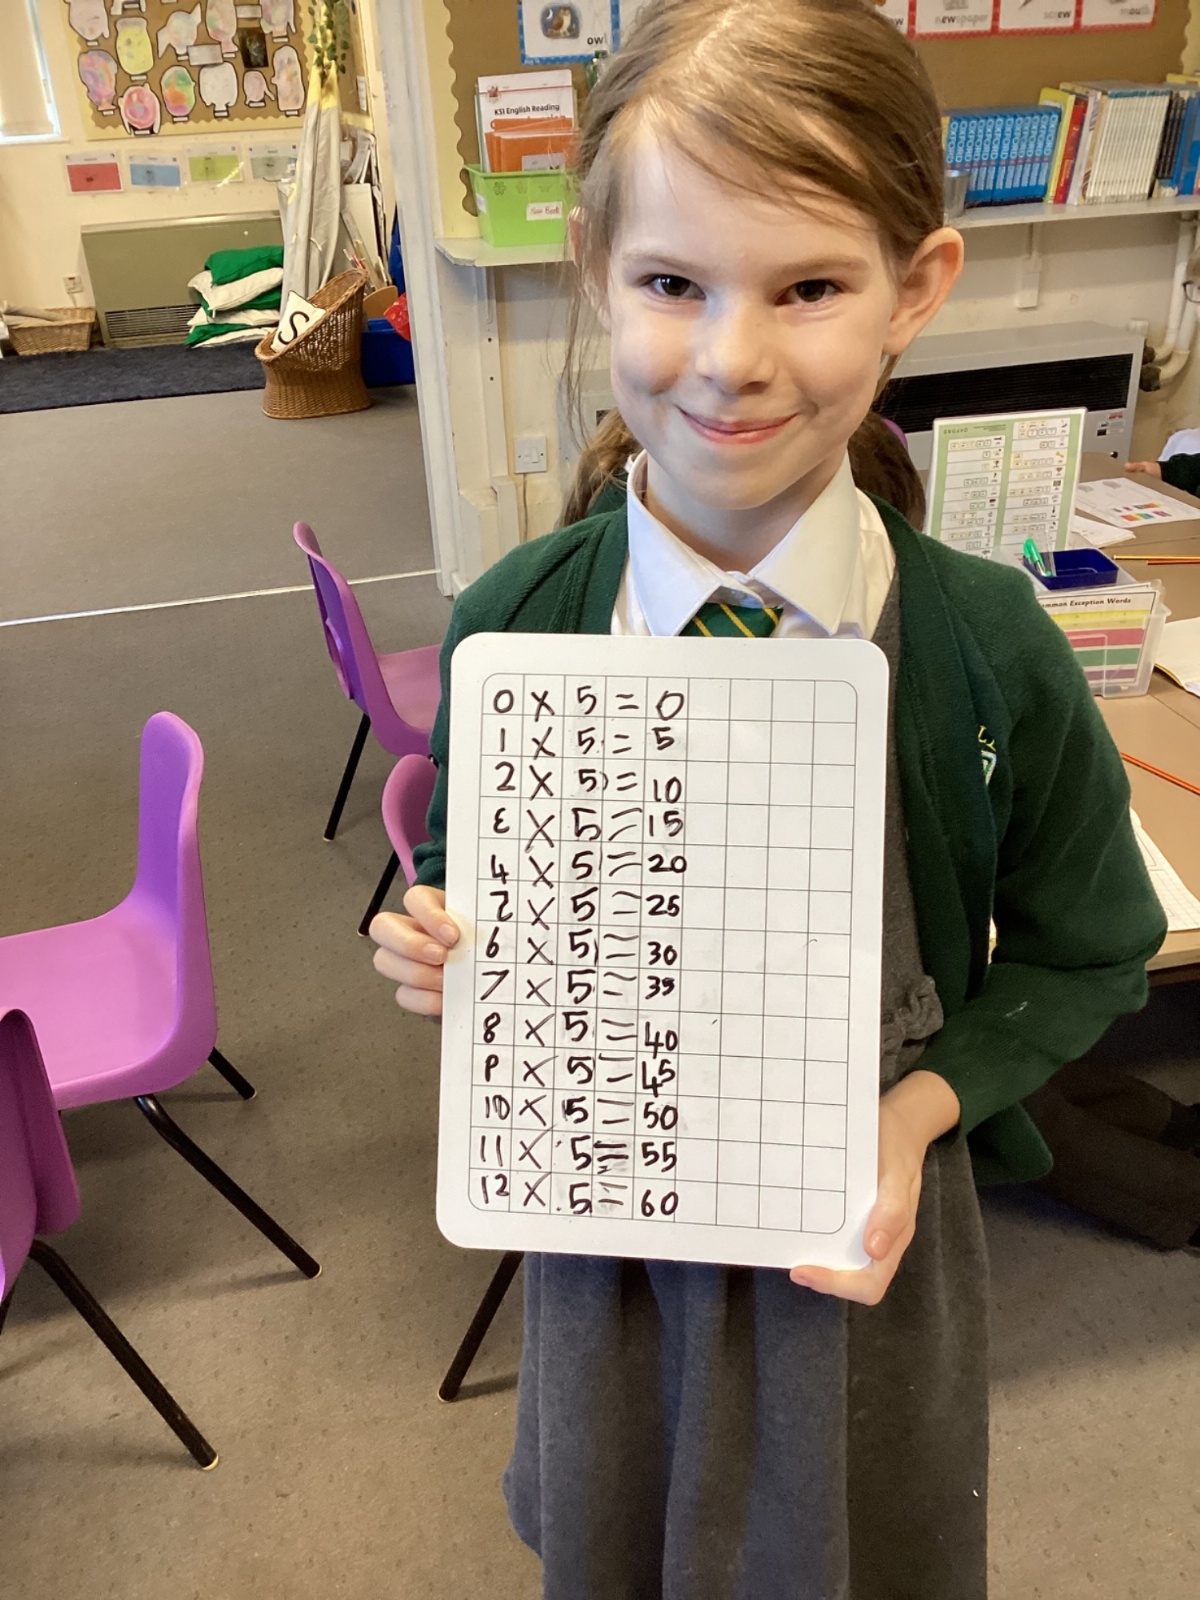 owl
newspaper
screw
mouth
KS1 English Reading
S
Common Exception Words
0 x 5 = 0
1 x 5 = 5
2 x 5 = 10
3 x 5 = 15
4 x 5 = 20
5 x 5 = 25
6 x 5 = 30
7 x 5 = 35
8 x 5 = 40
9 x 5 = 45
10 x 5 = 50
11 x 5 = 55
12 x 5 = 60